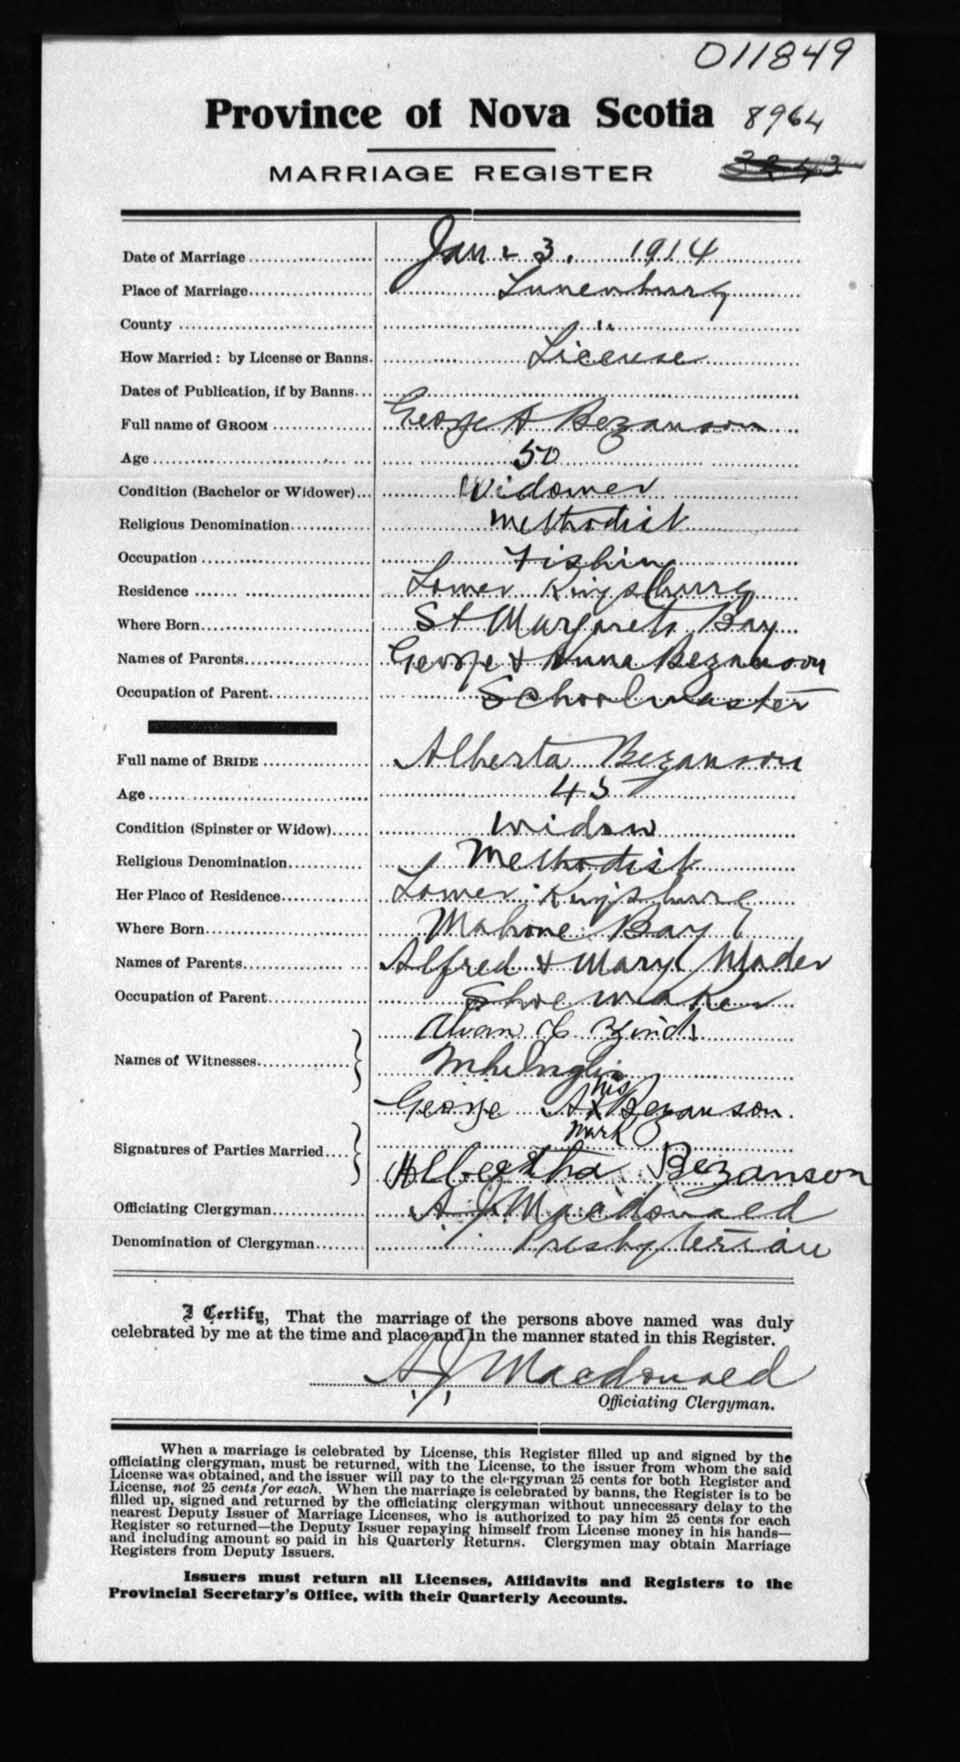 011849
Province of Nova Scotia 8964
MARRIAGE REGISTER
Date of Marriage Jan 23. 1914
Place of Marriage Lunenburg
County "
How Married: by License or Banns. License
Dates of Publication, if by Banns
Full name of GROOM George A Bezanson
Age 50
Condition (Bachelor or Widower) Widower
Religious Denomination Methodist
Occupation Fishing
Residence Lower Kingsburg
Where Born St Margarets Bay
Names of Parents George & Anna Bezanson
Occupation of Parent Schoolmaster
Full name of BRIDE Alberta Bezanson
Age 45
Condition (Spinster or Widow) Widow
Religious Denomination Methodist
Her Place of Residence Lower Kingsburg
Where Born Mahone Bay
Names of Parents Alfred & Mary Mader
Occupation of Parent Shoe maker
Names of Witnesses
his
George A X Bezanson.
mark
Signatures of Parties Married
Albertha Bezanson
Officiating Clergyman A J Macdonald
Denomination of Clergyman Presbyterian
I Certify, That the marriage of the persons above named was duly
celebrated by me at the time and place and in the manner stated in this Register.
A J Macdonald
Officiating Clergyman.
When a marriage is celebrated by License, this Register filled up and signed by the
officiating clergyman, must be returned, with the License, to the issuer from whom the said
License was obtained, and the issuer will pay to the clergyman 25 cents for both Register and
License, not 25 cents for each. When the marriage is celebrated by banns, the Register is to be
filled up, signed and returned by the officiating clergyman without unnecessary delay to the
nearest Deputy Issuer of Marriage Licenses, who is authorized to pay him 25 cents for each
Register so returned—the Deputy Issuer repaying himself from License money in his hands—
and including amount so paid in his Quarterly Returns. Clergymen may obtain Marriage
Registers from Deputy Issuers.
Issuers must return all Licenses, Affidavits and Registers to the
Provincial Secretary's Office, with their Quarterly Accounts.